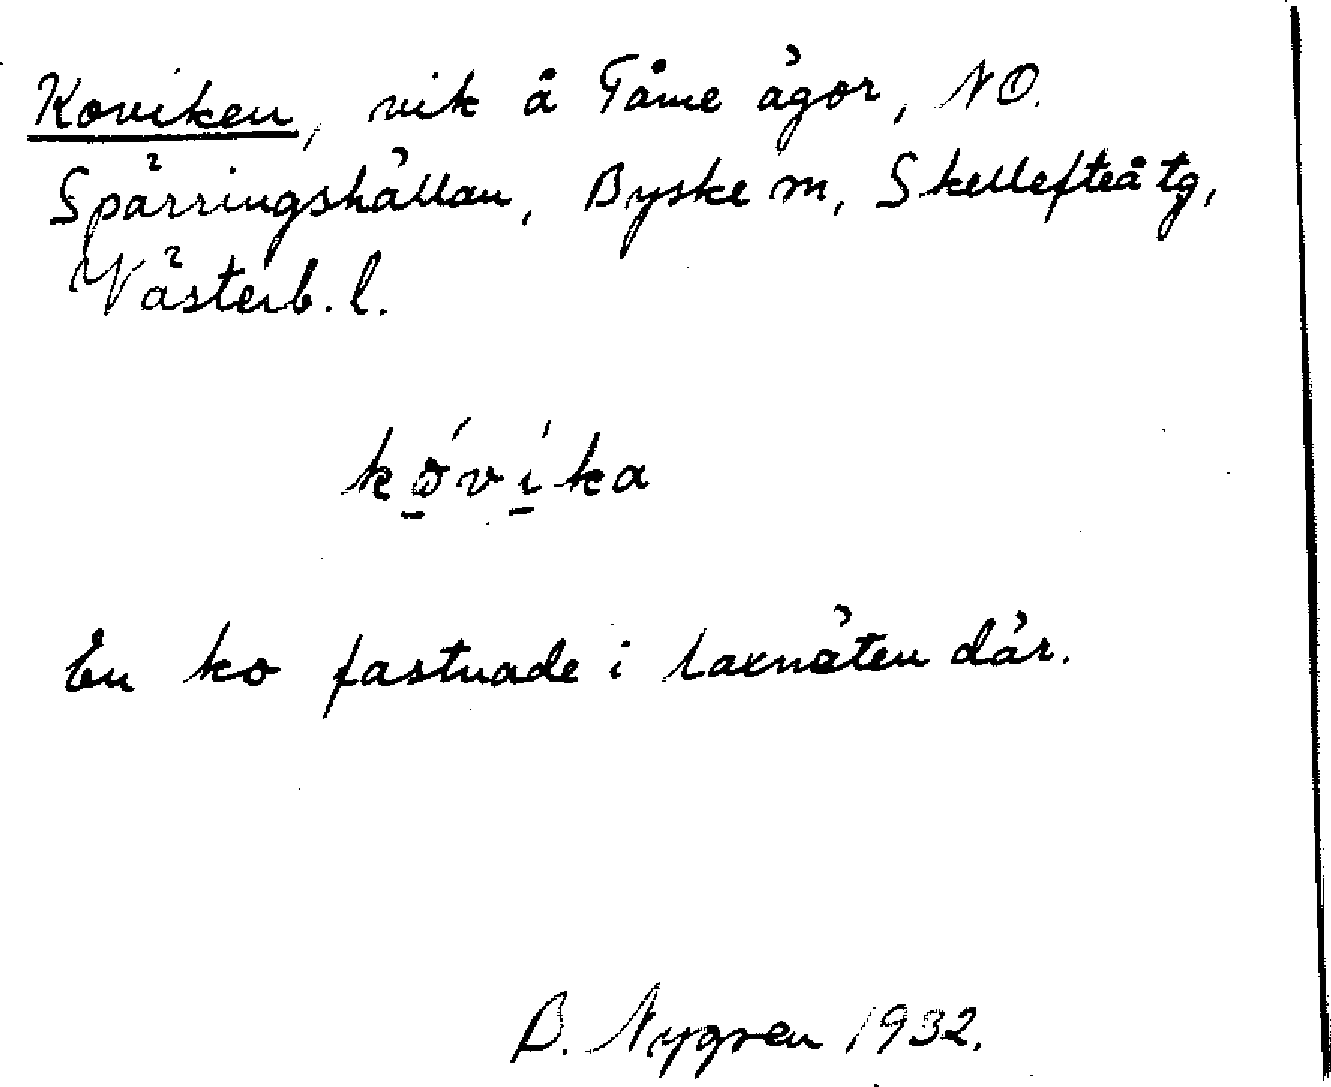 Koviken, vik å Tåme ägor, NO.
Spärringshällan, Byske m, Skellefteå tg,
Västerb. l.
kǫ́ví̱ka
En ko fastnade i laxnäten där.
B. Nygren 1932.